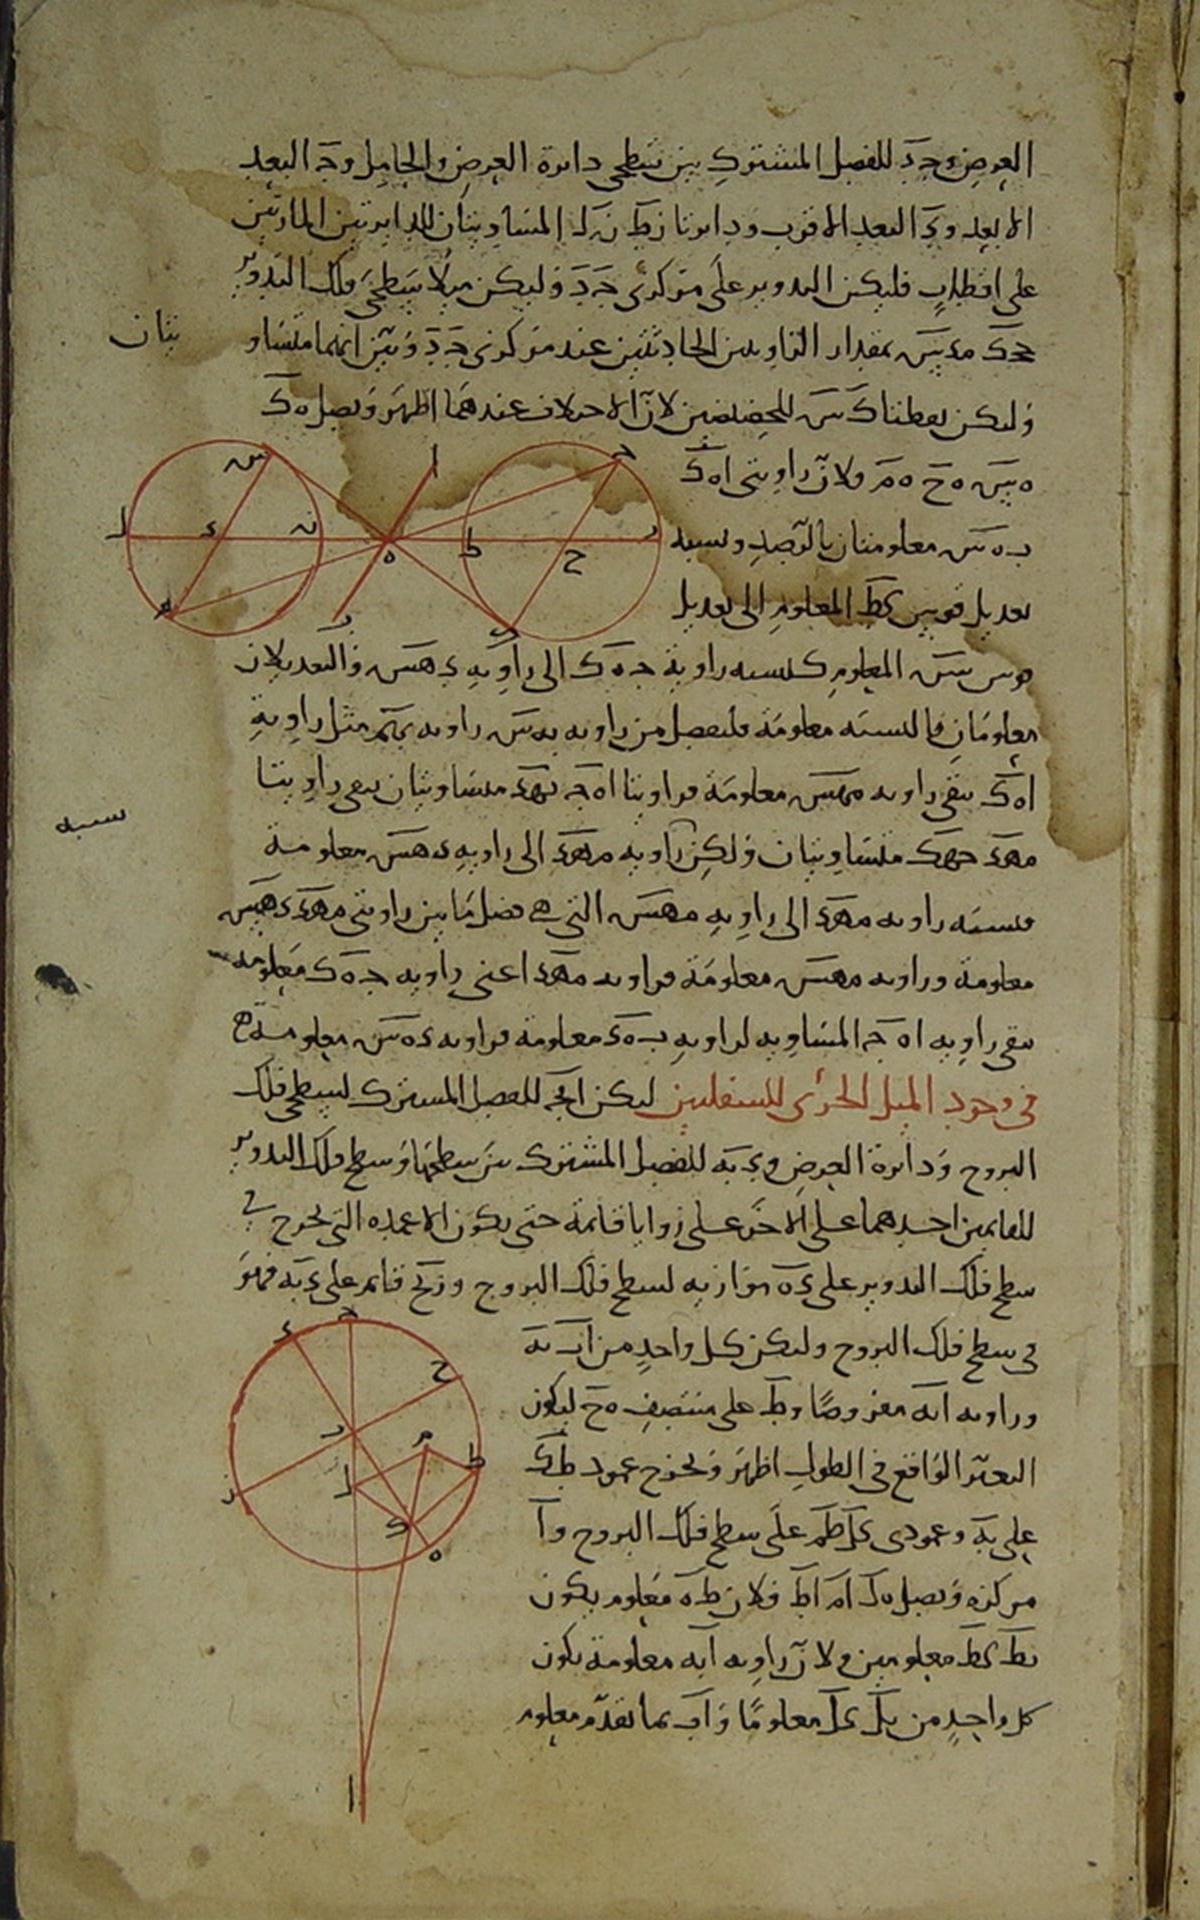 العرض وجد للفصل المشترك بين سطحي دائرة العرض والحامل وجه البعد
الابعد وى البعد الاقرب ودائرتا زط نل المتساويتان للدايرتين المارتين
على اقطاب فليكن التدوير على مركزى ج د وليكن ميلا سطحى فلك التدوير
بمقدار الزاويتين الحادثتين عند مركزى ج د وبين انهما متساو
يتان
وليكن نقطتا ك س للحضيضين لان الاختلاف عندهما اظهر ونصل ه ك
ه س ه ح ه م ولان زاويتى اه ك
ب ه س معلومتان بالرصد ونسبة
تعديل قوس كط المعلوم الى تعديل
قوس س المعلوم كنسبه زاوية ج ه ك الى زاويه ى ه س والتعديلان
معلومان فالنسبه معلومة فلنفصل من زاويه ب ه س زاويه ب ه م مثل زاوية
اه ك تبقى زاويه م ه س معلومة فزاويتا اه ج ب ه د متساويتان تبقى زاويتا
م ه د ج ه ك متساويتان ولكن زاويه م ه د الى زاويه د ه س معلومة
نسبه
فنسبه زاويه م ه د الى زاويه م ه س التى هى فضل ما بين زاويتى م ه د د ه س
معلومة وزاويه م ه س معلومة فزاويه م ه د اعنى زاويه ج ه ك معلومه
تبقى زاويه اه ج المساويه لزاويه ب ه د معلومة فزاويه د ه س معلومة
فى وجود الميل الجزئى للسفليين ليكن ا ج للفصل المشترك لسطحى فلك
البروج ودائرة العرض و د ب ه للفصل المشترك بين سطحها وسطح فلك التدوير
القايمين احدهما على الاخر على زوايا قائمة حتى يكون الاعمده التى تخرج فى
سطح فلك التدوير على د ه موازيه لسطح فلك البروج و ز ح قائم على د ه فهو
فى سطح فلك البروج وليكن كل واحد من اب به
وزاويه ابه مفروضا وط على منتصف ه ح ليكون
التغير الواقع فى الطول اظهر ونخرج عمود طك
على به وعمودى كل طم على سطح فلك البروج وا
مركزه ونصل ل ام اط فلان طه معلوم يكون
بط كط معلومين ولان زاويه ابه معلومة يكون
كل واحد من بل كل معلوما واب بما تقدم معلوم